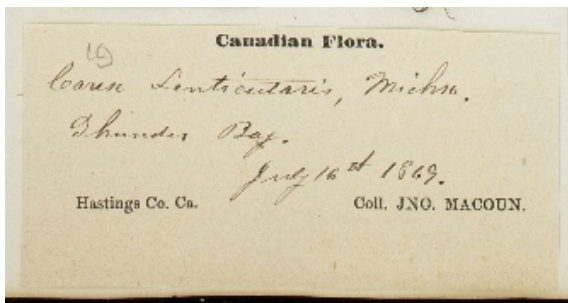 Canadian Flora.
Carex Lenticularis, Michx.
Thunder Bay.
July 16th 1869.
Hastings Co. Ca. Coll. JNO. MACOUN.